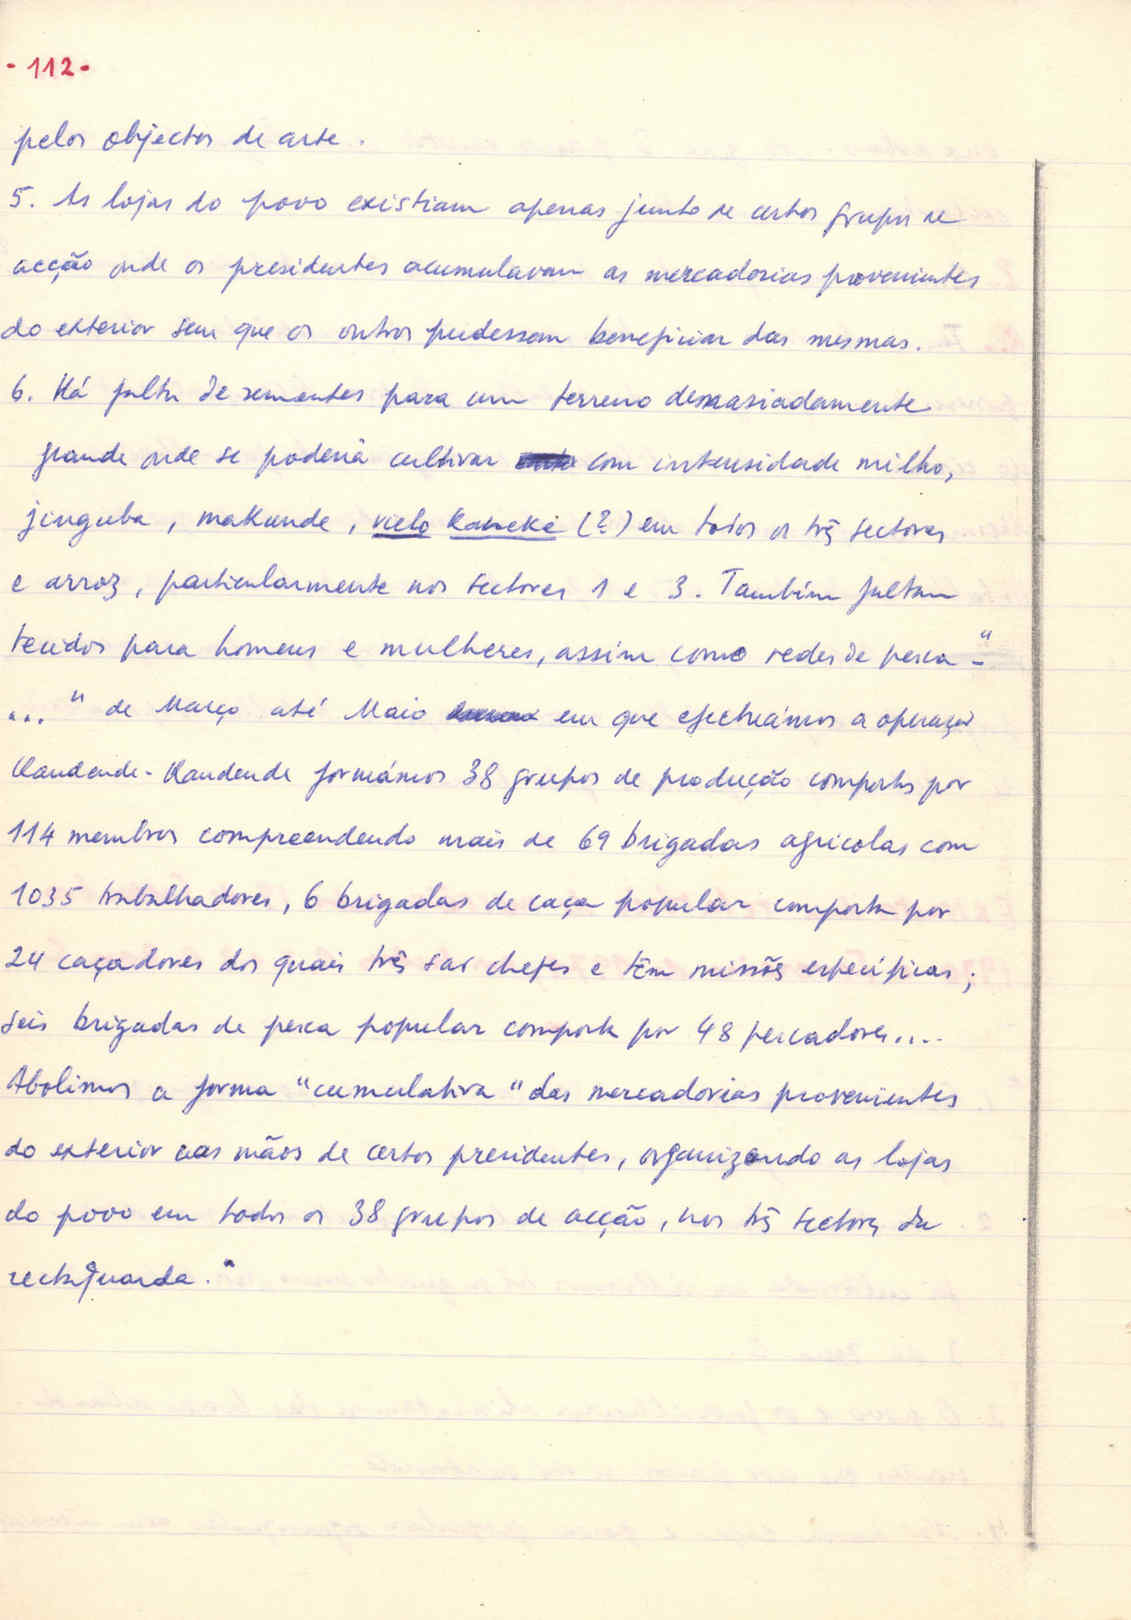 - 112 -
pelos objectos de arte.
5. As lojas do povo existiam apenas junto de certos grupos de
acção onde os presidentes acumulavam as mercadorias provenientes
do exterior sem que os outros pudessem beneficiar das mesmas.
6. Há falta de sementes para um terreno demasiadamente
grande onde se poderia cultivar com intensidade milho,
jinguba, makunde, vielo Kaheke (?) em todos os três sectores
e arroz, particularmente nos sectores 1 e 3. Também faltam
tecidos para homens e mulheres, assim como redes de pesca -"
..." de Março até Maio em que efectuámos a operação
Kandende-Kandende formámos 38 grupos de produção compostos por
114 membros compreendendo mais de 69 brigadas agricolas com
1035 trabalhadores, 6 brigadas de caça popular composta por
24 caçadores dos quais três são chefes e têm missões específicas;
seis brigadas de pesca popular composta por 48 pescadores....
Abolimos a forma "cumulativa" das mercadorias provenientes
do exterior nas mãos de certos presidentes, organizando as lojas
do povo em todos os 38 grupos de acção, nos três sectores da
rectaguarda."